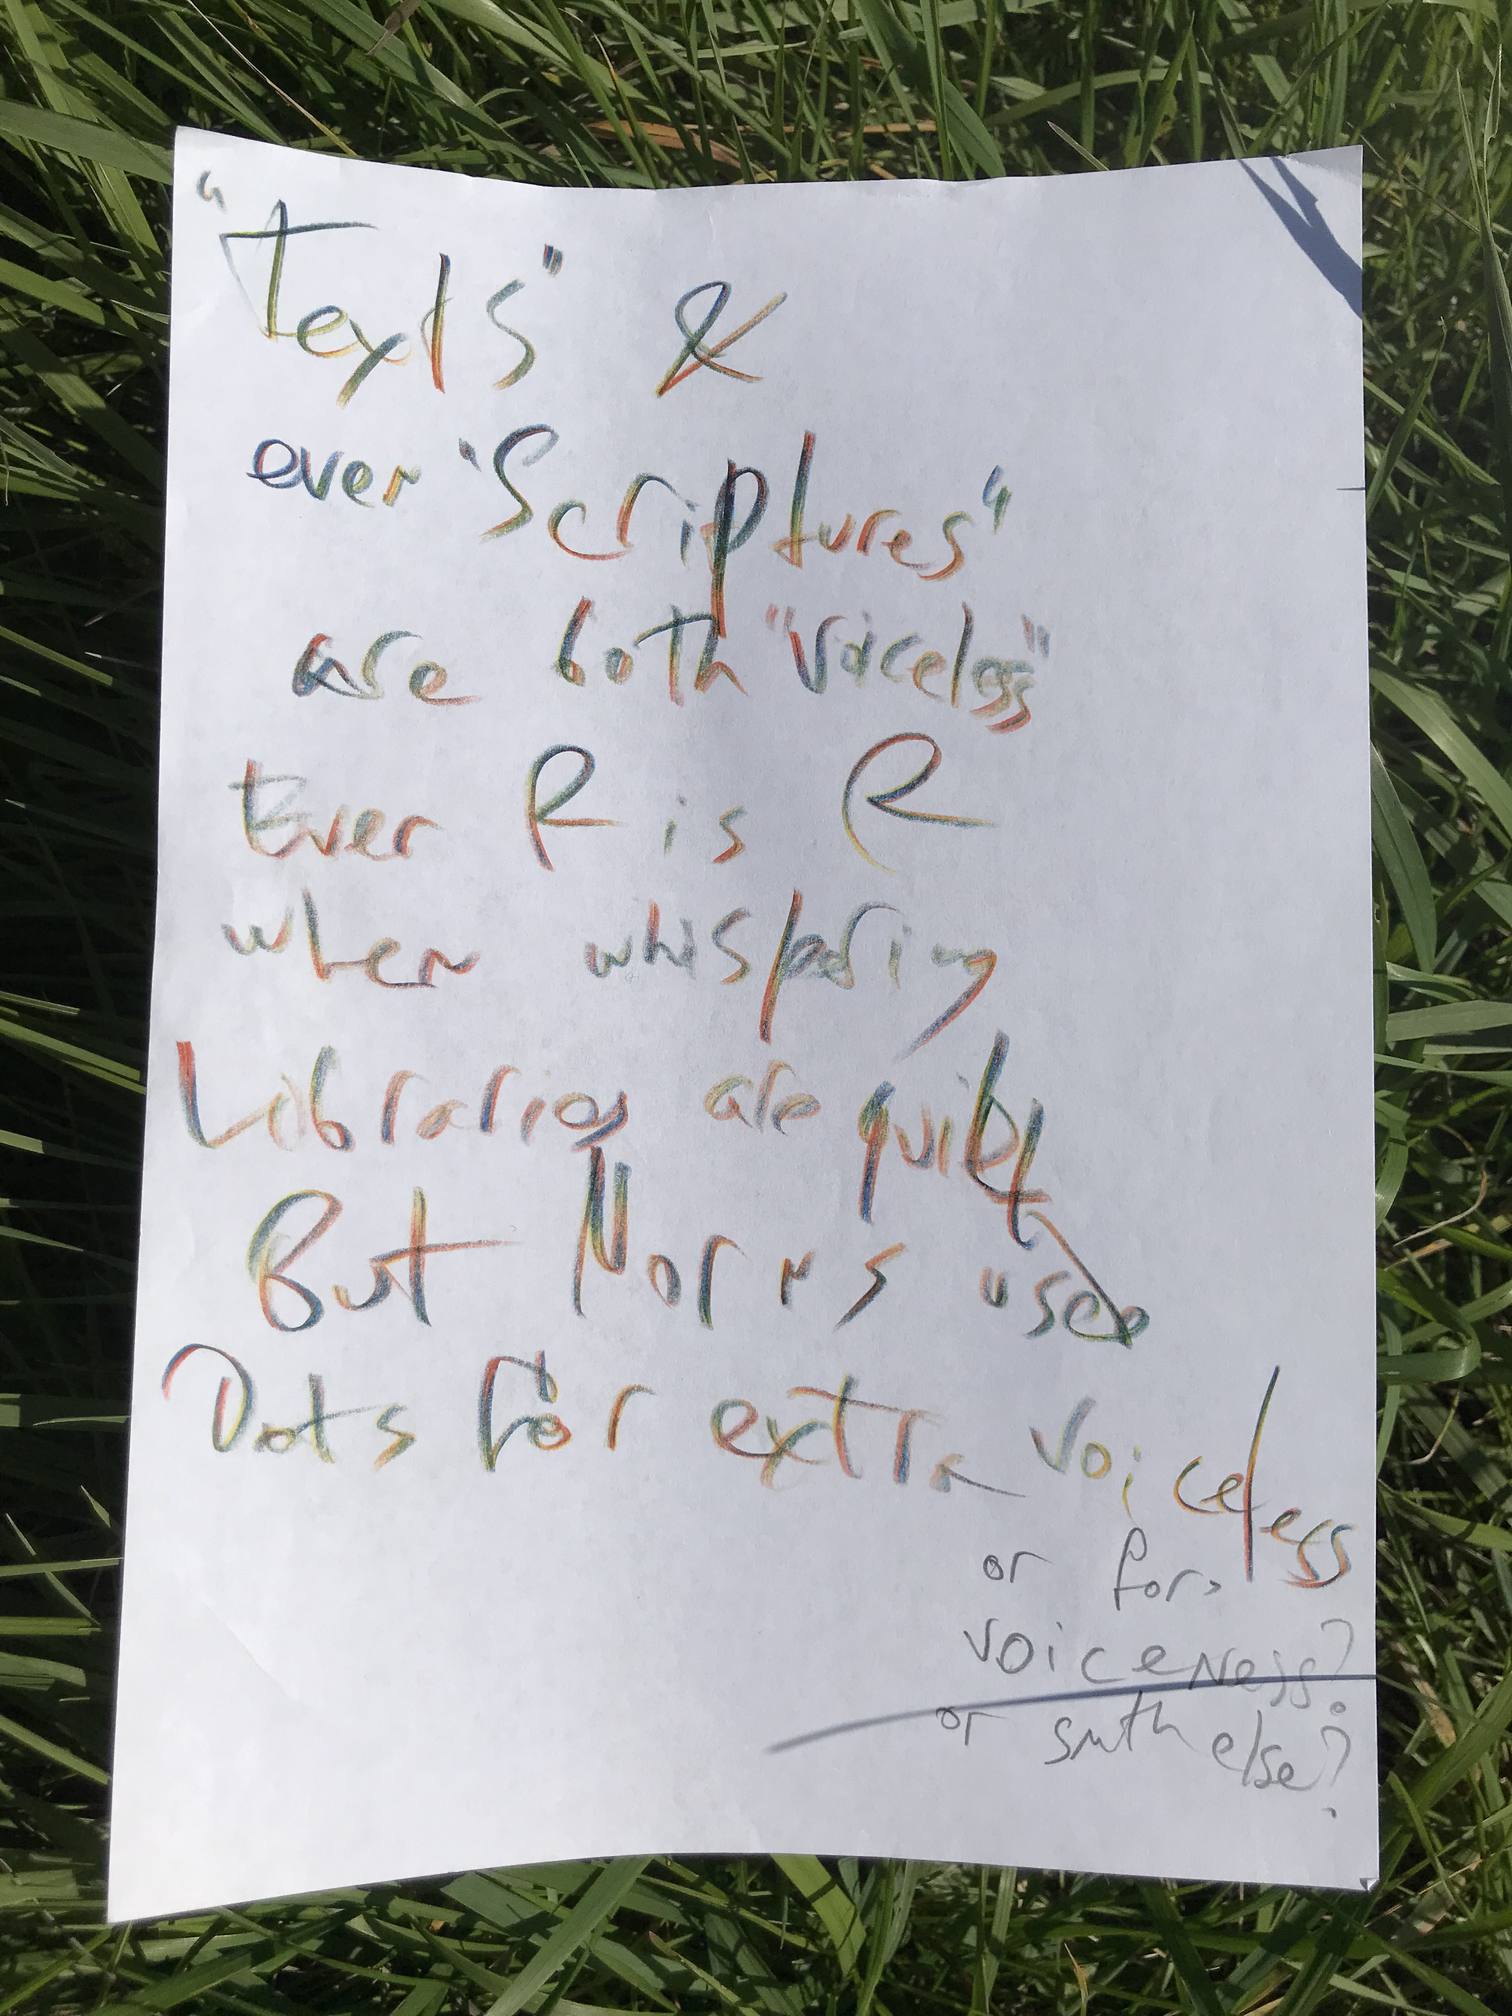 "Texts" &
even "Scriptures"
are both "Voiceless"
Even R is R
when whispering
Libraries are quiet
But Norns used
Dots for extra voiceless
or for
voiceness?
or smth else?